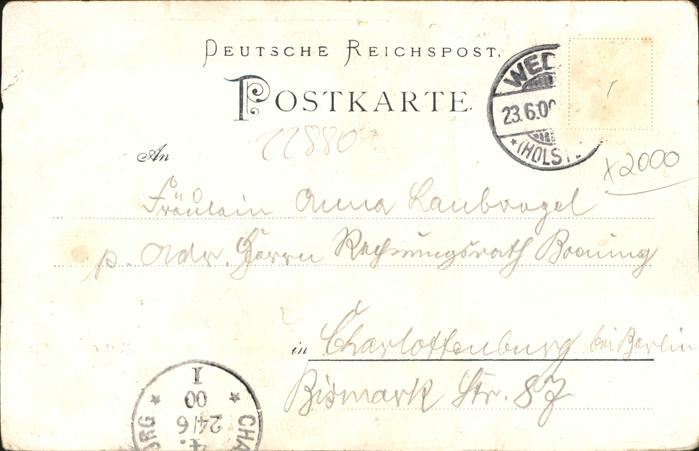 DEUTSCHE REICHSPOST.
POSTKARTE.
WED
23.6.00
* (HOLST
22880
x2000
An
Fräulein Anna Laubvogel
p. Adr. Herrn Rechnungsrath Broning
in Charlottenburg bei Berlin
Bismarck Str. 87
CHA
* 24/6 *
00
I
BRG